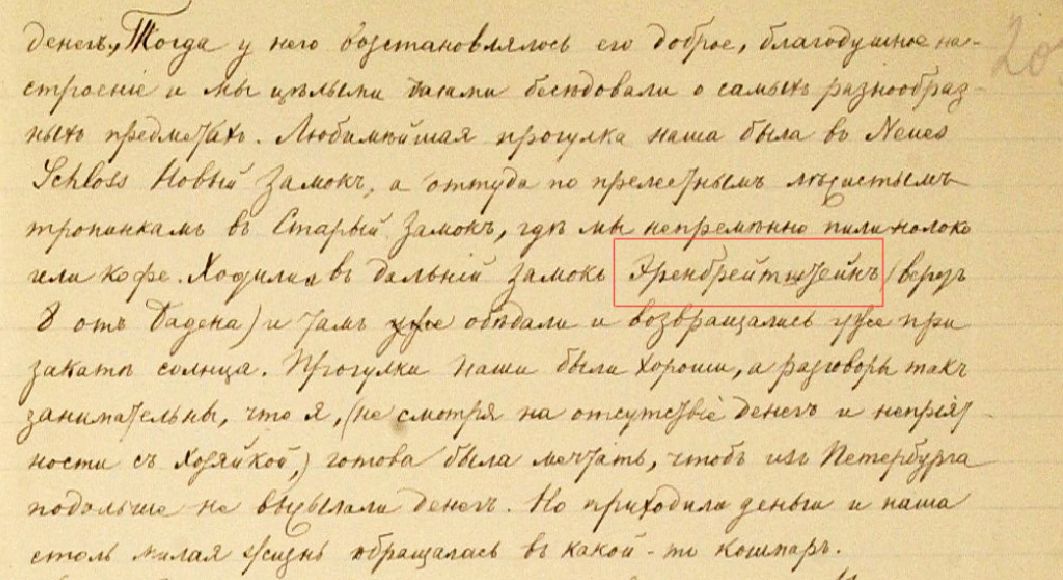 денегъ. Тогда у него возстановлялось его доброе, благодушное на-
строеніе и мы цѣлыми днями бесѣдовали о самыхъ разнообраз-
ныхъ предметахъ. Любимѣйшая прогулка наша была въ Neues
Schloss Новый Замокъ, а оттуда по прелестнымъ лѣсистымъ
тропинкамъ въ Старый Замокъ, гдѣ мы непремѣнно пили молоко
или кофе. Ходили и въ дальній замокъ Эренбрейтштейнъ (верстъ
8 отъ Бадена) и тамъ обѣдали и возвращались уже при
закатѣ солнца. Прогулки наши были хороши, а разговоры такъ
занимательны, что я, (не смотря на отсутствіе денегъ и непріят-
ности съ хозяйкой,) готова была мечтать, чтобъ изъ Петербурга
подольше не высылали денегъ. Но приходили деньги и наша
столь милая жизнь обращалась въ какой-то кошмаръ.
20